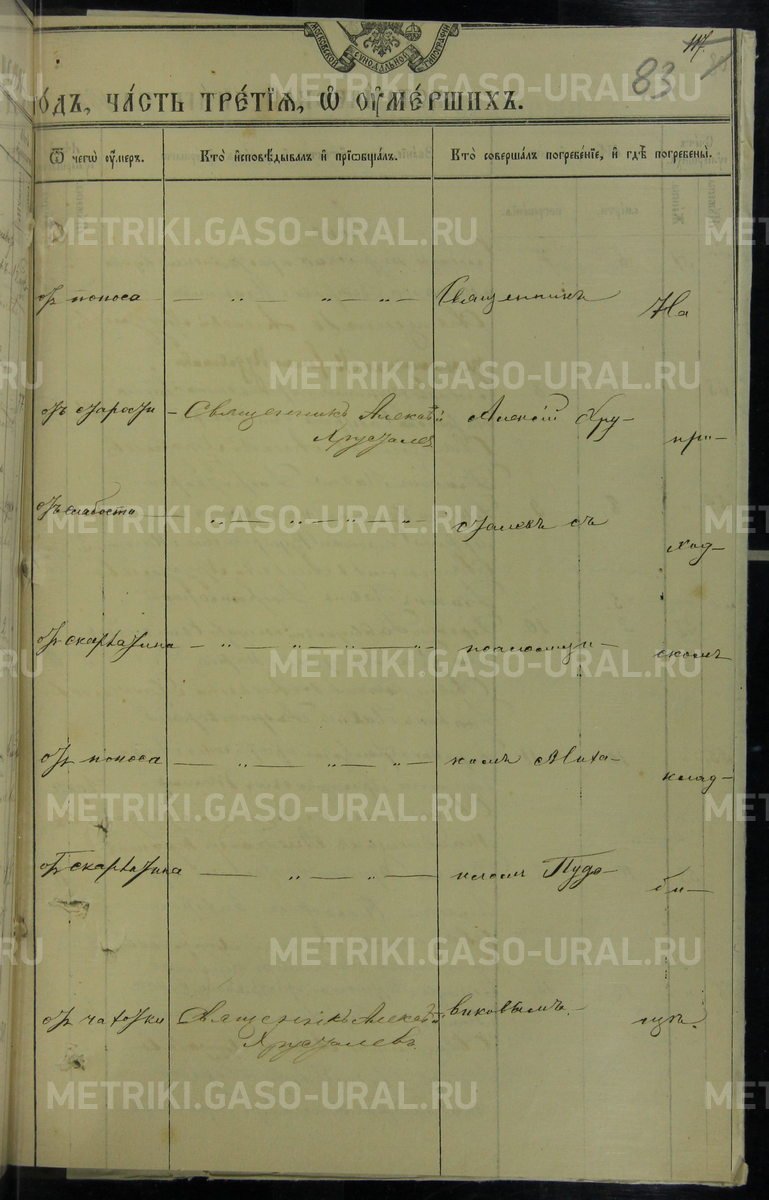 МОСКОВСКОЙ СѴНОДАЛЬНОЙ ТИПОГРАФІИ
117.
83
ОДЪ, ЧА́СТЬ ТРЕ́ТІѦ, Ѡ҆ ОУ҆МЕ́РШИХЪ.
Ѿ чегѡ̀ оу҆́меръ.
Кто̀ и҆сповѣ́дывалъ и҆ прїѡбща́лъ.
Кто̀ соверша́лъ погребе́нїе, и҆ гдѣ̀ погребены̀.
отъ поноса — „ — „ — „ —
Священникъ
На
отъ старости — Священникъ Алексѣй Хрусталев
Алексій Хру-
при-
отъ слабости — „ — „ — „ — „ —
сталевъ съ
ход-
отъ скарлатина — „ — „ — „ — „ —
псаломщи-
скомъ
отъ поноса — „ — „ — „ —
комъ Миха-
клад-
отъ скарлатина — „ — „ —
иломъ Пудо-
би-
отъ чахотки Священникъ Алексѣй Хрусталевъ
виковымъ.
щѣ.
METRIKI.GASO-URAL.RU